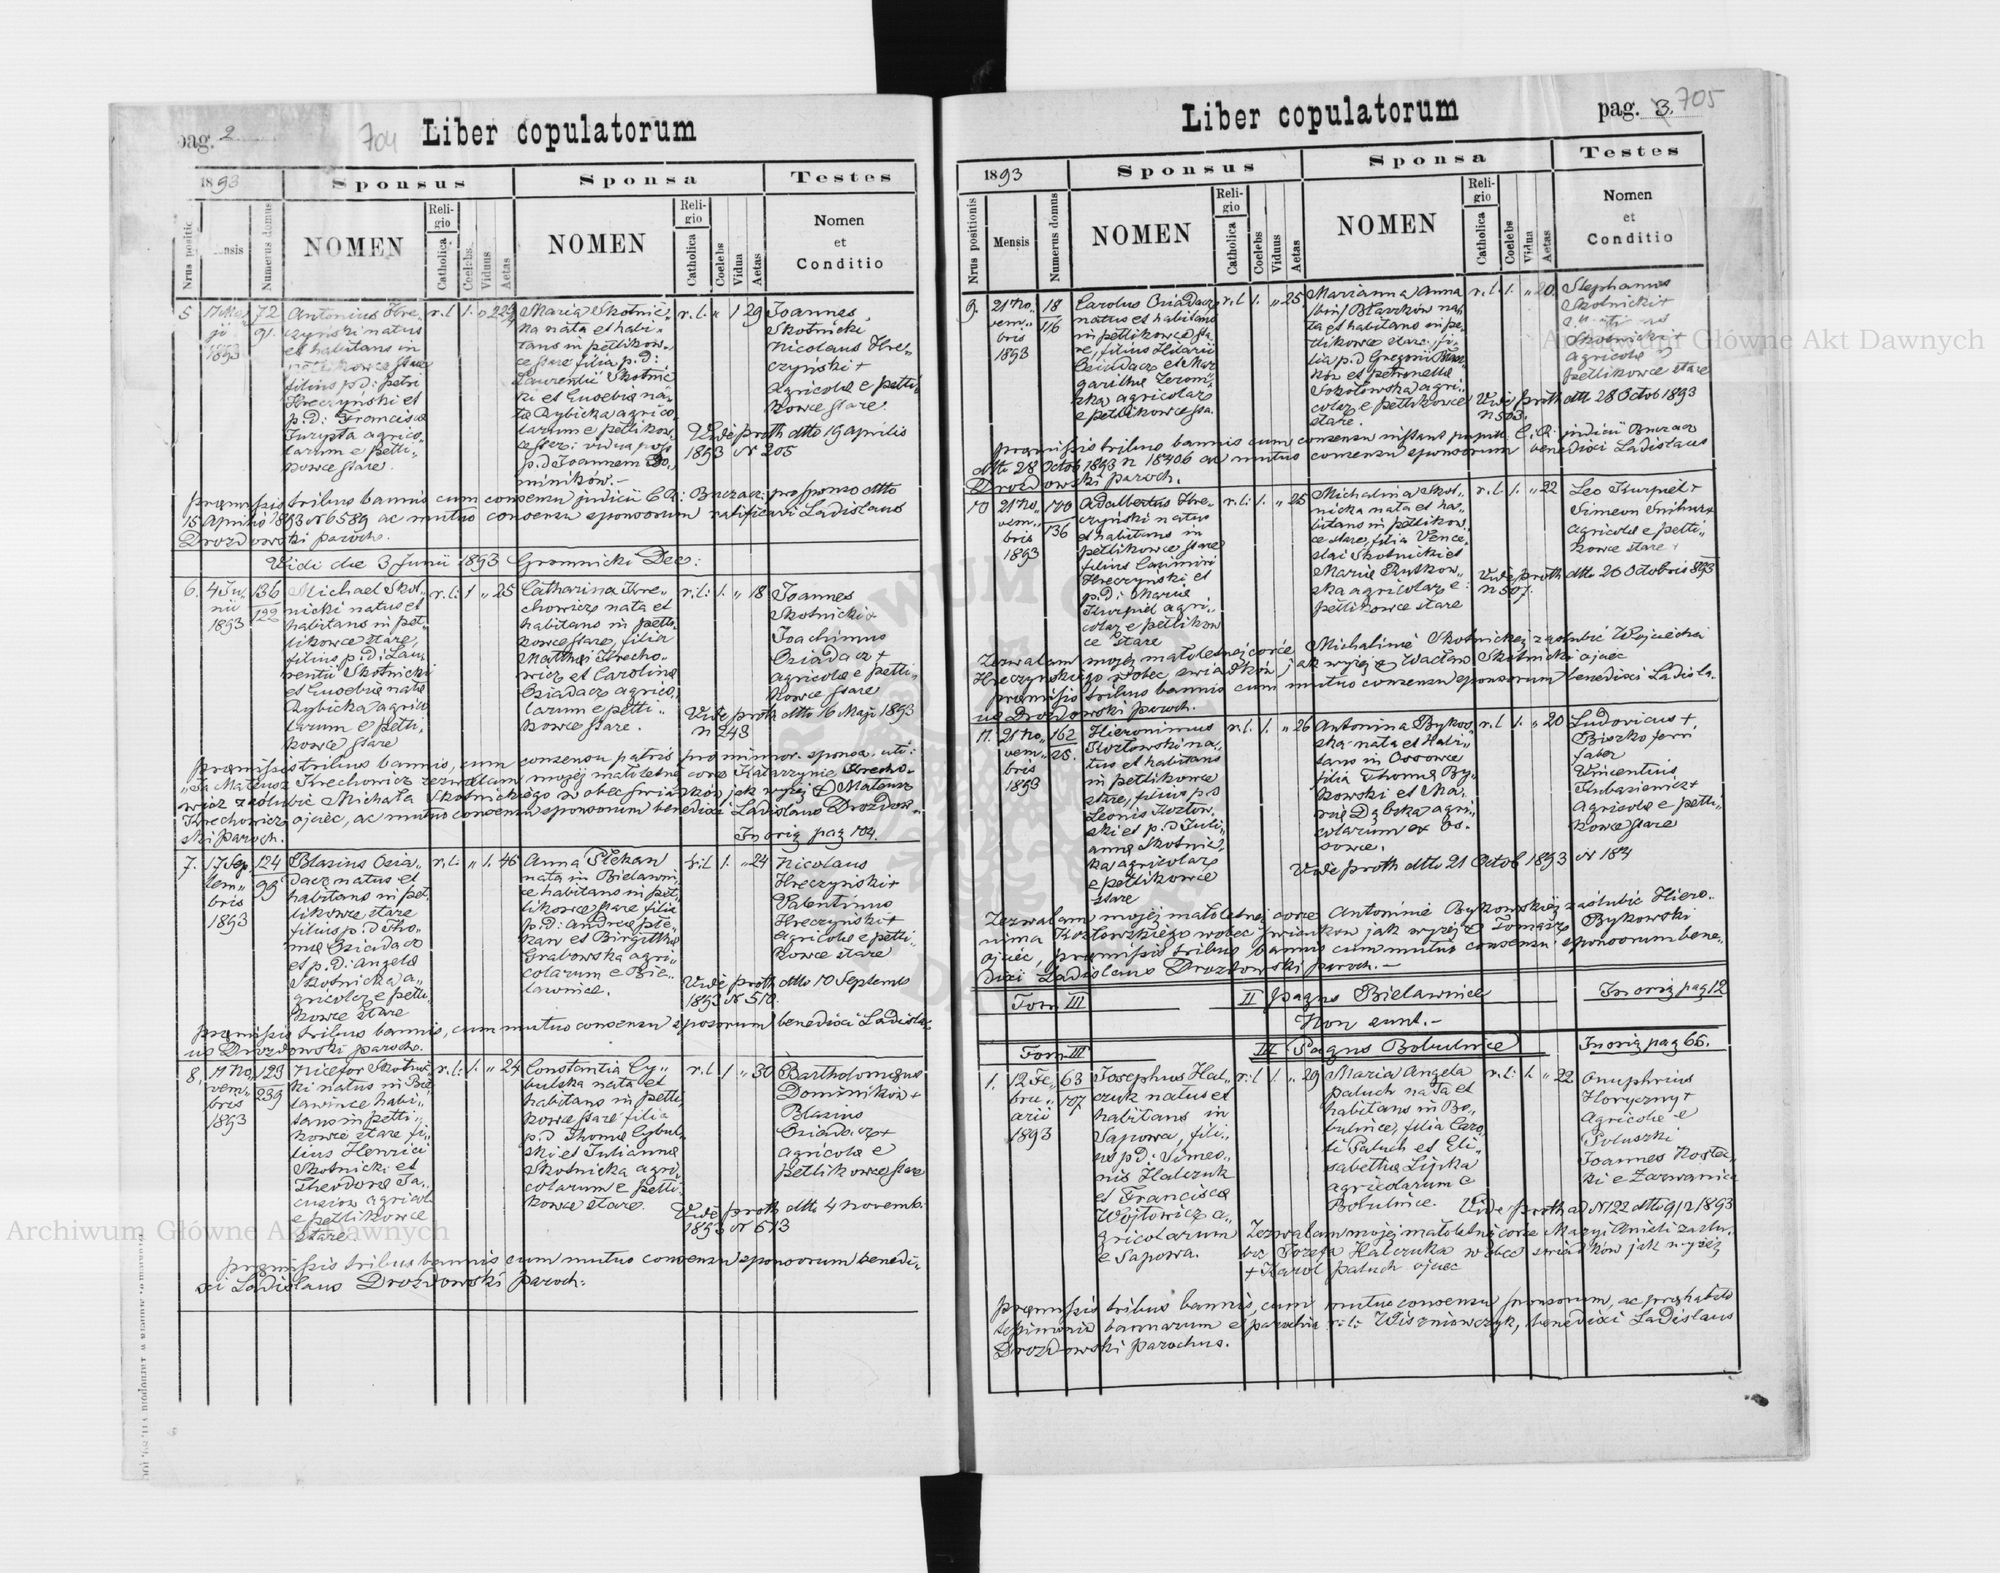 pag. 2
704
Liber copulatorum
1893
Sponsus
Sponsa
Testes
Nrus positio
nsis
Numerus domus
NOMEN
Religio
Catholica
Coelebs
Viduus
Aetas
NOMEN
Religio
Catholica
Coelebs
Vidua
Aetas
Nomen
et
Conditio
5
17 Ma
ji
1893
72
91.
Antonius Hre„
czyński natus
et habitans in
Petlikowce stare
filius p.d: Petri
Hreczyński et
p.d: Francisca
agrico„
larum e Petli„
kowce stare.
r.l.
1.
„
Maria Skotnic„
ka nata et habi„
tans in Petlikow„
ce stare filia p.d:
Laurentii Skotnic
ki et Eusebia na„
ta Rybicka agrico
larum e Petlikow„
ce stare: vidua post
p.d Joannem Do„
miników.-
r.l.
„
1
29
Joannes
Skotnicki
Nicolaus Hre„
czyński +
Agricolae e Petli„
kowce stare.
Vide proth dtto 19 Aprilis
1893 N 205
Praemissis tribus bannis cum consensu judicii C.R: Buczac: pro sponso dtto
15 Aprilis 1893 N 6589 ac mutuo consensu sponsorum ratificavi Ladislaus
Drozdowski paroch.
Vidi die 3 Junii 1893 Gromnicki Dec:
6.
4 Ju„
nii
1893
136
122
Michael Skot„
nicki natus et
habitans in Pet„
likowce stare,
filius p.d: Lau„
rentii Skotnicki
et Eusebia nata
Rybicka agrico
larum e Petli„
kowce stare
r.l:
1
„
25
Catharina Kre„
chowicz nata et
habitans in Petli„
kowce stare, filia
Mathaei Krecho„
wicz et Carolina
Osiadacz agrico„
larum e Petli„
kowce stare.
r.l:
1.
„
18
Joannes
Skotnicki+
Joachimus
Osiadacz +
agricolae e Petli„
kowce stare
Vide proth dtto 16 Maji 1893
N 243
Praemissis tribus bannis, cum consensu patris pro minor. sponsa. uti:
„Ja Mateusz Krechowicz zezwalam mojej małoletniej córce Katarzynie Krecho„
wicz zaślubić Michała Skotnickiego w obec świadków jak wyżej + Mateusz
Krechowicz ojciec, ac mutuo consensu sponsorum benedixi Ladislaus Drozdow„
ski paroch.
In orig pag 104.
7.
17 Sep„
tem„
bris
1893
124
99
Blasius Osia„
dacz natus et
habitans in Pet„
likowce stare
filius p.d Tho„
mae Osiadacz
et p.d: Angela
Skotnicka a„
gricolar e Petli„
kowce stare
r.l:
„
1.
46
Anna Plekan
nata in Bielawin„
ce habitans in Pet„
likowce stare filia
p.d: Andrea Ple„
kan et Birgitta
Grabowska agri„
colarum e Bie„
lawince.
r.l
1.
„
24
Nicolaus
Hreczyński+
Valentinus
Hreczyński+
agricolae e Petli„
kowce stare
Vide proth dtto 10 Septemb
1893 N 510.
Praemissis tribus bannis, cum mutuo consensu sponsorum benedixi Ladisla„
us Drozdowski paroch.
8.
11 No„
vem„
bris
1893
129
239
Nicefor Skotnic„
ki natus in Bie„
lawince habi„
tans in Petli„
kowce stare fi„
lius Henrici
Skotnicki et
Theodora
agricol
e Petlikowce
stare
r.l:
1.
„
24
Constantia Cy„
bulska nata et
habitans in Petli„
kowce stare filia
p.d Thomae Cybul„
ski et Julianna
Skotnicka agri„
colarum e Petli„
kowce stare.
r.l
1
„
30
Bartholomaeus
Dominików +
Blasius
Osiadacz+
agricolae e
Petlikowce stare
Vide proth dtto 4 Novemb.
1893 N 513
praemissis tribus bannis cum mutuo consensu sponsorum benedi„
xi Ladislaus Drozdowski paroch:
Liber copulatorum
pag. 3.
705
1893
Sponsus
Sponsa
Testes
Nrus positionis
Mensis
Numerus domus
NOMEN
Religio
Catholica
Coelebs
Viduus
Aetas
NOMEN
Religio
Catholica
Coelebs
Vidua
Aetas
Nomen
et
Conditio
9.
21 No„
vem„
bris
1893
18
116
Carolus Osiadacz
natus et habitans
in Petlikowce sta„
re, filius Hilarii
Osiadacz et Mar„
garitha Zerom„
ska agricolar
e Petlikowce sta.
r.l
1.
„
25.
Marianna Anna
(bin) na„
ta et habitans in Pe„
tlikowce stare, fi„
lia p.d Gregorii
et Petronella
Sokołowska agri„
colar e Petlikowce
stare.
r.l.
1.
„
20.
Stephanus
Skotnicki+
Skotnicki+
Agricolae
Petlikowce stare
Vide proth dtt 28 Octob 1893
N 503.
praemissis tribus bannis cum consensu pupill. C.R. judicii Buczacz
dtto 28 Octob 1893 N 18406 ac mutuo consensu sponsorum benedixi Ladislaus
Drozdowski paroch.
10
21 No„
vem„
bris
1893
170
136
Adalbertus Hre„
czyński natus
et habitans in
Petlikowce stare
filius Casimiri
Hreczyński et
p.d: Maria
Kurpiel agri„
colar e Petlikow
ce stare
r.l:
1.
„
25
Michalina Skot„
nicka nata et ha„
bitans in Petlikow„
ce stare, filia Vence„
slai Skotnicki et
Maria Rutkow„
ska agricolar e
Petlikowce stare
r.l.
1.
„
22
Leo Kurpiel+
Simeon Snihur+
agricolae e Petli„
kowce stare
Vide proth dtto 20 Octobris 893
N 507.
Zezwalam mojej małoletniej córce Michalinie Skotnickiej zaślubić Wojciecha
Hreczyńskiego wobec świadków jak wyżej + Wacław Skotnicki ojciec
praemissis tribus bannis cum mutuo consensu sponsorum benedixi Ladisla„
us Drozdowski paroch.
11.
21 No„
vem„
bris
1893
162
25.
Hieronimus
Kozłowski na„
tus et habitans
in Petlikowce
stare, filius p.d
Leonis Kozłow„
ski et p.d Juli„
anna Skotnic„
ka agricolar
e Petlikowce
stare
r.l.
1.
„
26
Antonina Bykow„
ska nata et habi„
tans in Ossowce
filia Thomae By„
kowski et Ma„
ria Dąbska agri„
colarum ex Os„
sowce.
r.l.
1.
„
20
Ludovicus +
Biszko ferri
faber
Vincentius
Agricolae e Petli„
kowce stare
Vide proth dtto 21 Octob 1893 N 184
Zezwalam mojej małoletniej córce Antoninie Bykowskiej zaślubić Hiero„
nima Kozłowskiego wobec świadków jak wyżej + Tomasz Bykowski
ojciec, praemissis tribus bannis cum mutuo consensu sponsorum bene„
dixi Ladislaus Drozdowski paroch.-
Tom III
II Pagus Bielawince
In orig pag 12
Non sunt.-
Tom III
III Pagus Bobulince
In orig pag 66.
1.
12 Fe„
bru„
arii
1893
63
107
Josephus Hal„
czuk natus et
habitans in
Sapowa, fili„
us p.d: Simeo„
nis Halczuk
et Francisca
Wojtowicz a„
gricolarum
e Sapowa.
r.l
1.
„
29
Maria Angela
Paluch nata et
habitans in Bo„
bulince, filia Caro„
li Paluch et Eli„
sabetha Lipka
agricolarum e
Bobulince.
r.l:
1.
„
22
Onuphrius
Horyczny+
Agricola e
Poluszki
Joannes Kostec„
ki e Zarwanica
Vide proth ad N 122 dtto 9/2 1893
Zezwalam mojej małoletniej córce Maryi Anieli zaślu„
bić Józefa Halczuka wobec świadków jak wyżej
+ Karol Paluch ojciec
praemissis tribus bannis, cum mutuo consensu sponsorum, ac praehabito
testimonio bannorum e parochia r:l: Wiszniowczyk, benedixi Ladislaus
Drozdowski parochus.
Archiwum Główne Akt Dawnych
Archiwum Główne Akt Dawnych